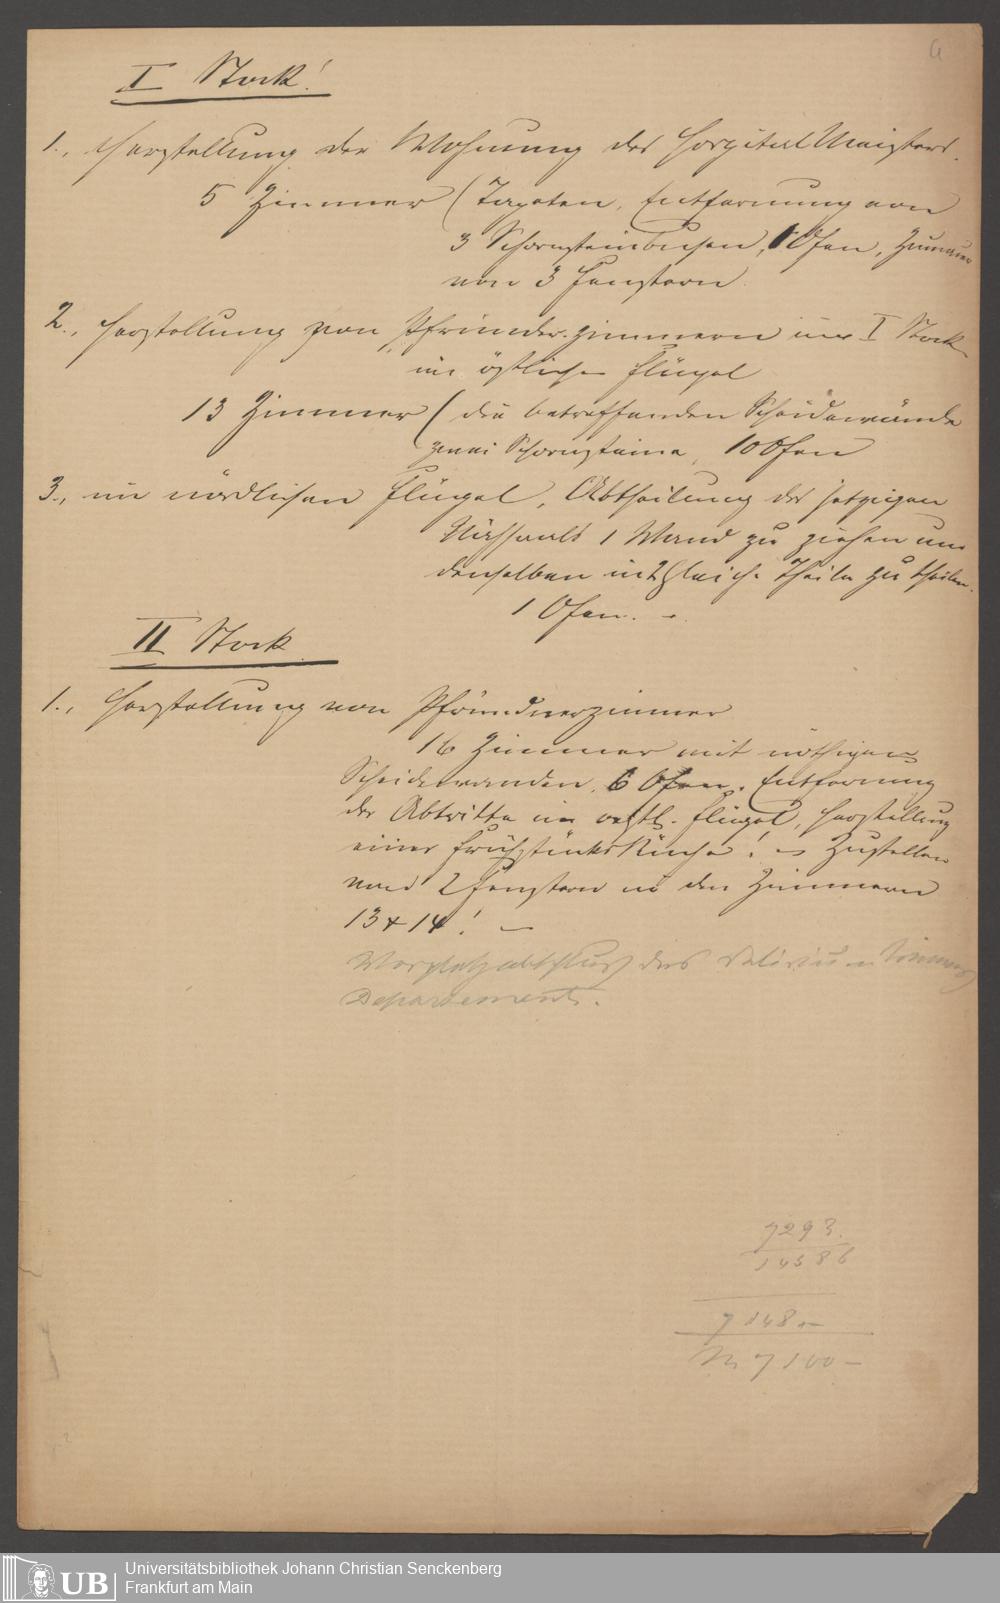 I Stock!
1., Herstellung der Wohnung des Hospital Meisters.
5 Zimmer (Tapeten, Entfernung von
3 Schornsteinbusen, 1 Ofen, Zumauern
von 3 Fenstern.
2., Herstellung von Pfründer-Zimmern im I Stock
im östlichen Flügel
13 Zimmer (die betreffenden Scheidewände
zwei Schornsteine, 10 Ofen
3., im nördlichen Flügel, Abtheilung des jetzigen
Nähsaals 1 Wand zu ziehen um
denselben in 2 gleiche Theile zu theilen.
1 Ofen. –
II Stock
1., Herstellung von Pfründnerzimmer
16 Zimmer mit nöthigen
Scheidewanden, 6 Ofen. Entfernung
der Abtritte im östl. Flügel, Herstellung
einer Frühstücks Küche! – Zustellen
von 2 Fenstern in den Zimmern
13 & 14! –
Vorplatzabschluß des
Departements.
7293.
14586
7148 –
M 7100 –
Universitätsbibliothek Johann Christian Senckenberg
Frankfurt am Main
UB